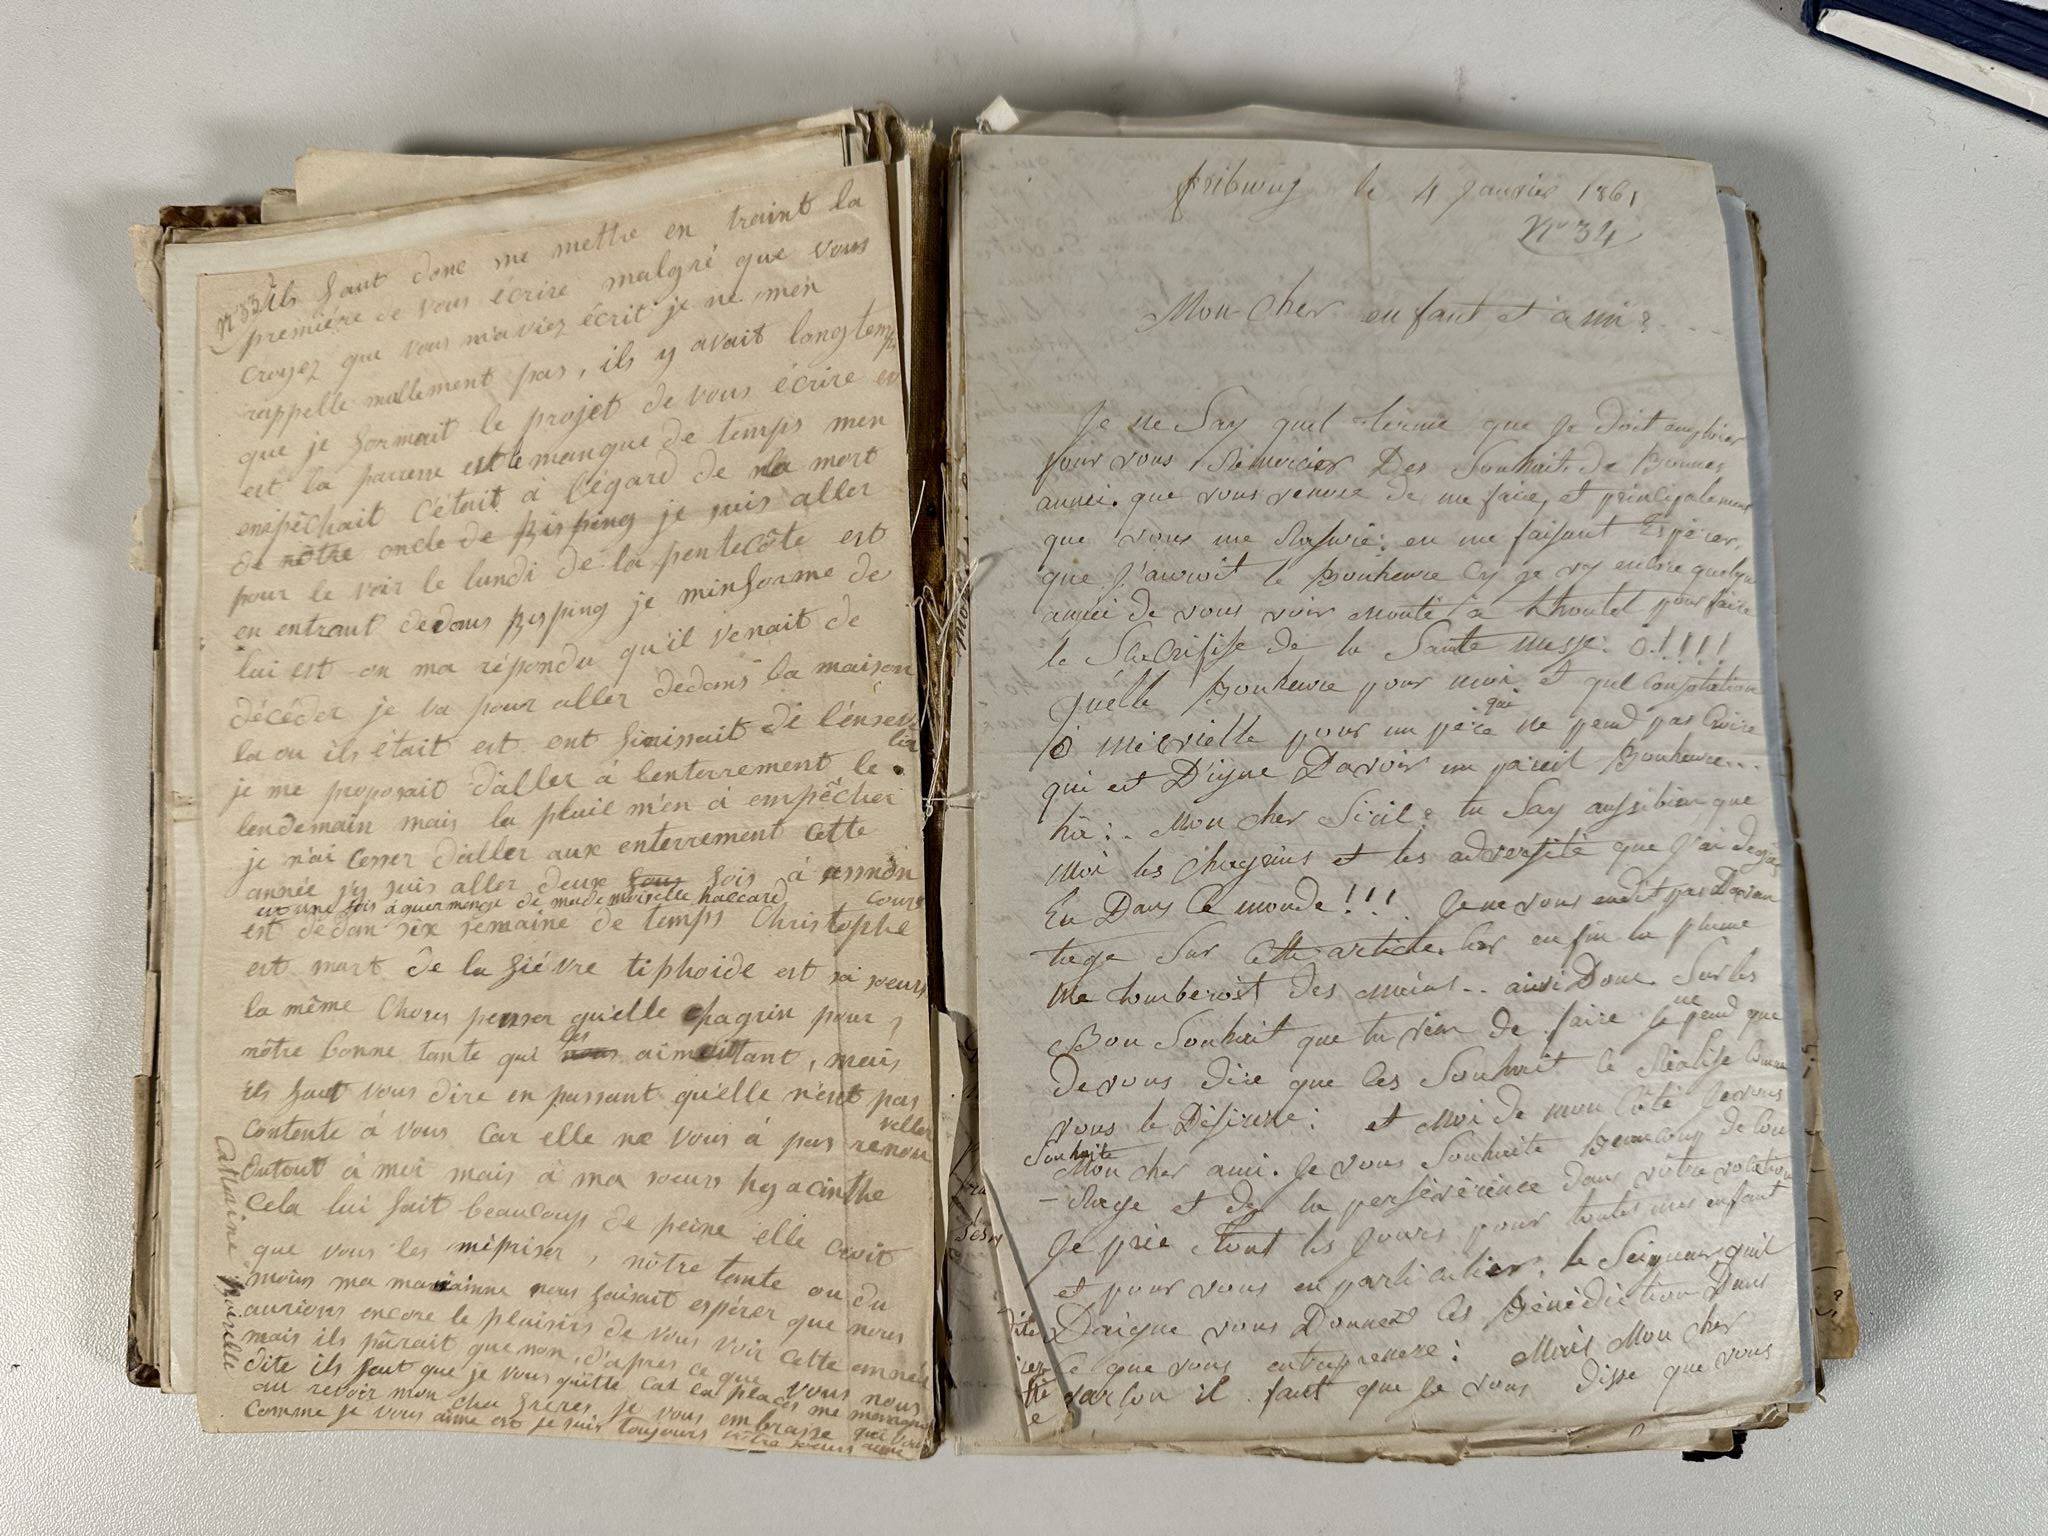 N° 33 ils faut donc me mettre en traint la
première de vous écrire malgré que vous
croyez que vous m'aviez écrit je ne m'en
rappelle mallement pas, ils y avait longtemps
que je formait le projet de vous écrire
est la paresse est le manque de temps m'en
empêchait c'était à l'égard de la mort
de nôtre oncle de Bisping je suis aller
pour le voir le lundi de la pentecôte est
en entrant dedans Bisping je m'informe de
lui est on ma répondu qu'il venait de
décéder je va pour aller dedans la maison
la ou ils était est ont finissait de l'énseve
lir
je me proposait d'aller à lenterrement le
lendemain mais la pluil m'en à empêcher
je n'ai cesser d'aller aux enterrement cette
année j'y suis aller deux fois à
est une fois à guermenge de mademoiselle halcard cours
est dedan six semaine de temps Christophe
est mort de la fiévre tiphoide est sa soeurs
la même Choses penser qu'elle chagrin pour
nôtre bonne tante qui les aimait tant, mais
ils faut vous dire en passant qu'elle n'est pas
contente à vous car elle ne vous à pas renou
veller
surtout à moi mais à ma soeurs hyacinthe
cela lui fait beaucoup de peine elle croit
que vous les mépriser, nôtre tante ou du
moins ma marainne nous faisait espérer que nous
aurions encore le plaisirs de vous voir cette année
mais ils pârait que non, d'apres ce que vous nous
dite ils faut que je vous quitte car la places me manque
au revoir mon cher frères je vous embrasse que vous
comme je vous aime est je suis toujours vôtre soeurs amie
Cathérine
fribourg le 4 Janvier 1861
N° 34
Mon Cher enfant et ami?...
Je ne Say quel terme que Je Doit employer
pour vous Remercier Des Souhait de Bonnes
année. que vous venese de me faire, et principalement
que vous me Rasurie: en me faisant Espérer,
que J'auroit le Bonheure Cy Je vy encore quelque
année de vous voir Monté a Lhautel pour faire
le Sacrifise de la Sainte messe: o.!!!!
Quelle Bonheure pour moi et quel Consolation
o merveille pour un père qui ne peud pas Croire
qui est D'igne Davoir un pareil Bonheure...
ha:.. Mon cher Sicil? tu Say aussibien que
Moi les Chagrins et les adversité que J'ai deja
Eu Dans Ce monde!!! Je ne vous endit pas Davan
tage Sur Cette article. Car enfin la plume
me tomberoit des mains.. ainsi Donc Sur les
Bon Souhait que tu vien de faire Je ne peud que
de vous dire que Ces Souhait Ce Réalise Comme
vous le Désirese: et Moi de mon Côté Je vous
Souhaite
Mon cher ami. Je vous Souhaite Beaucoup de Cou
-Rage et de la persévérence dans vôtre vocation
Je prie tout les Jours pour toutes mes enfant
et pour vous en particulier, le Seigneur quil
Daigne vous Donner Ces Bénédiction Dans
Ce que vous entreprenese: Mais Mon cher
Garçon il faut que Je vous disse que vous